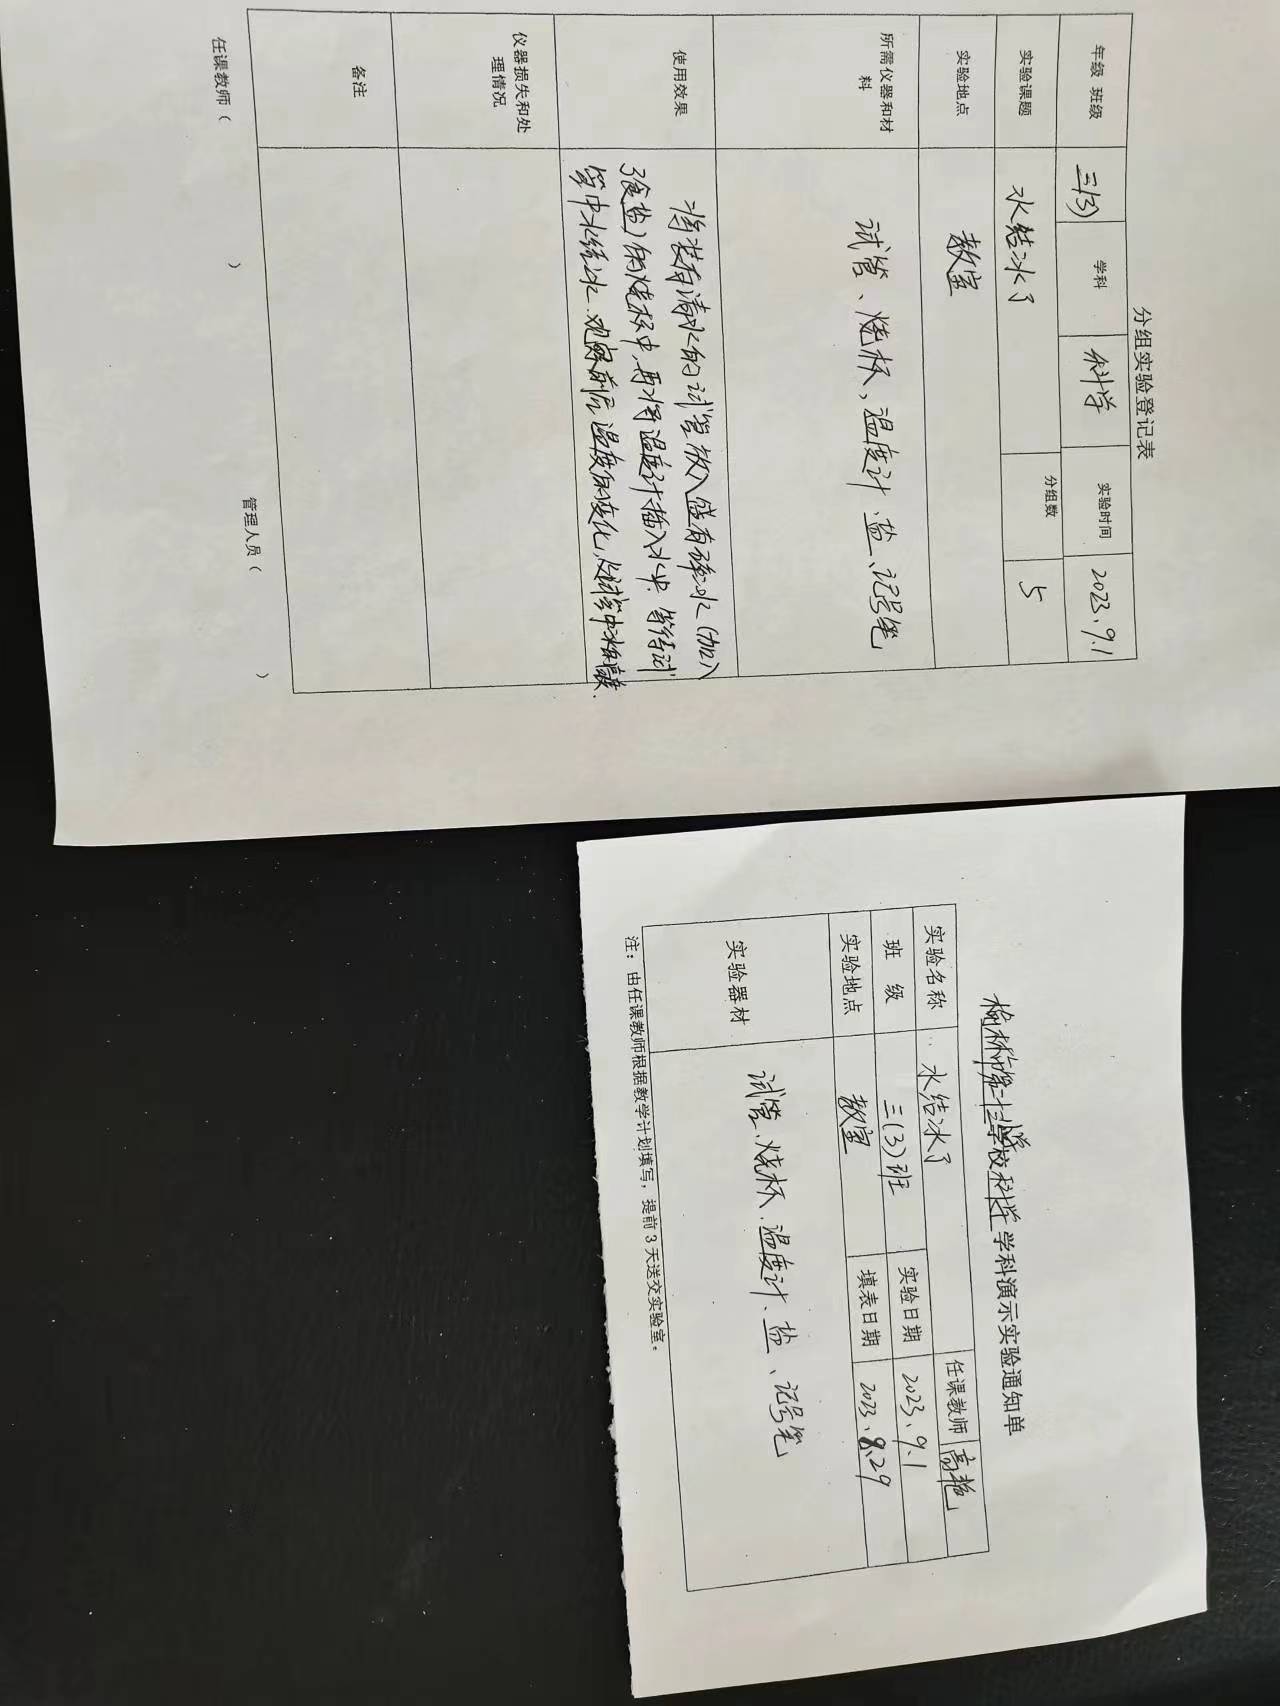 分组实验登记表
年级 班级 三(3) 学科 科学 实验时间 2023.9.1
实验课题 水结冰了 分组数 5
实验地点 教室
所需仪器和材料 试管、烧杯、温度计、盐、记号笔
使用效果 将装有清水的试管放入盛有碎冰(加入
了食盐)的烧杯中,再将温度计插入水中.等待试
管中水结冰.观察前后温度的变化,及试管中
仪器损失和处理情况
备注
任课教师( ) 管理人员( )
榆林市第十二小学学校科学学科演示实验通知单
实验名称 水结冰了 任课教师 高艳
班 级 三(3)班 实验日期 2023.9.1
实验地点 教室 填表日期 2023.8.29
实验器材 试管、烧杯、温度计、盐、记号笔
注:由任课教师根据教学计划填写,提前3天送交实验室。